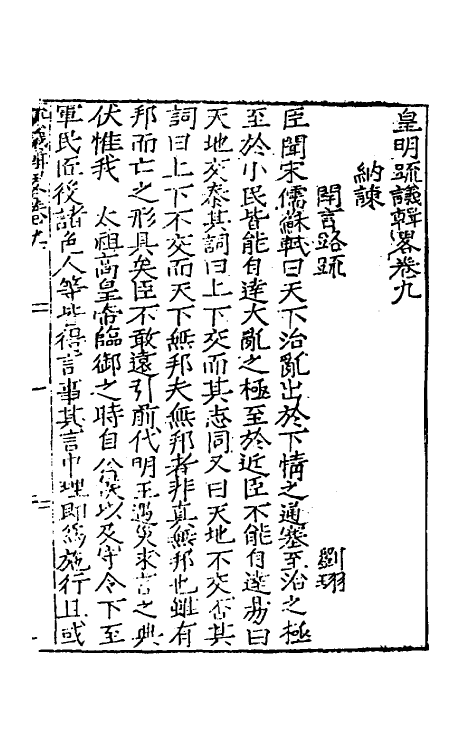 皇明疏議輯畧卷九
納諫
開言路疏
劉珝
臣聞宋儒蘇軾曰天下治亂出於下情之通塞至治之極
至於小民皆能自達大亂之極至於近臣不能自達易曰
天地交泰其詞曰上下交而其志同又曰天地不交否其
詞曰上下不交而天下無邦夫無邦者非真無邦也雖有
邦而亡之形具矣臣不敢遠引前代明王遇災求言之典
伏惟我 太祖高皇帝臨御之時自公侯以及守令下至
軍民匠役諸色人等皆得言事其言中理即爲施行且或